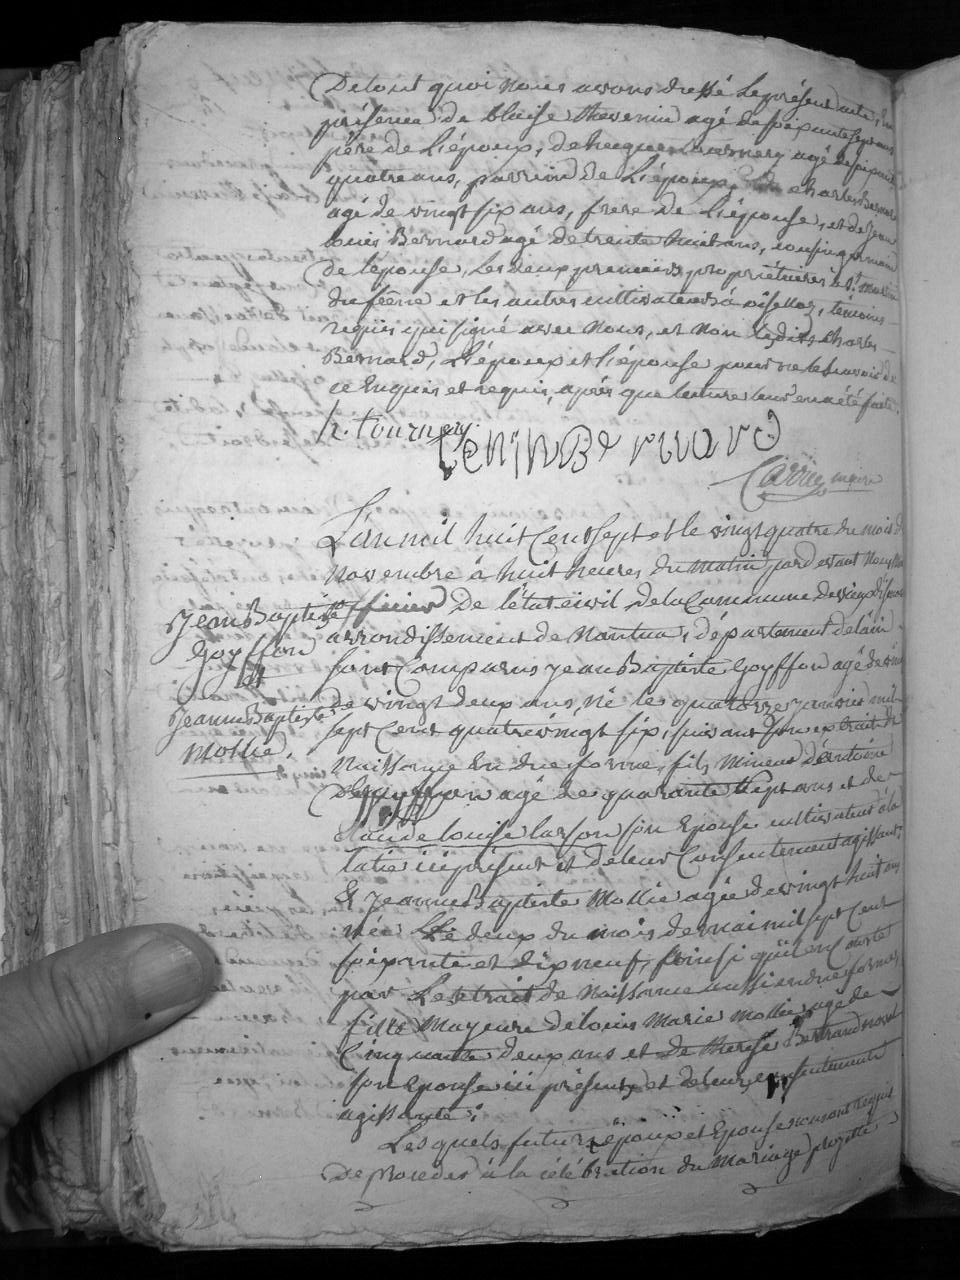 De tout quoi nous avons dressé le présent acte, en
présence de blaise thevenin agé de soixante sept ans
père de l'époux, de hugues tournery agé de soixante
quatre ans, parrain de l'époux, charles Bernard
agé de vingt six ans, frere de l'épouse, et de jean
louis Bernard agé de trente huit ans, cousin germain
de l'épouse, les deux premiers propriétaires à St martin
du frêne et les autres cultivateurs à oisellaz, témoins
requis qui signé avec nous, et non ledit charles
Bernard, l'époux et l'épouse pour ne le savoir de
ce Enquis et requis, après que lecture leur en a été faite.
h. tournery. tenin Bernard
Carrier maire
L'an mil huit Cent sept et le vingt quatre du mois de
novembre à huit heures du matin pardevant nous
officier De l'état civil de la Commune de vieux d'
arrondissement de Nantua, département de lain
Jean Baptiste
Goyffon
et
Jeanne Baptiste
Mollie.
sont Comparus jean Baptiste Goyffon agé de
de vingt deux ans, né les quatorze janvier mil
sept Cent quatrevingt six, suivant son extrait de
Naissance En due forme, fils Mineur d'antoine
Goyffon agé de quarante sept ans et de
Claudé louise larson son Epouse cultivateur à la
latie ici présent et de leur Consentement agissant,
Et jeanne Baptiste Mollie agée de vingt huit ans
née Le deux du mois de mai mil sept Cent
soixante et dix neuf, Ainsi qu'il en Conste
par Lextrait de Naissance aussi en due forme,
fille Mayeure de louis Marie mollie agé de
Cinquante deux ans et de therese Bertrand
son Epouse ici présents et de leur consentement
agissante;
Lesquels futurs époux et Epouse nous ont requis
De proceder à la célébration du Mariage projetté